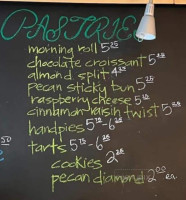 PASTRIE
morning roll 5
chocolate croissant 5
almond split 4
pecan sticky bun 5
raspberry cheese 5
cinnamon raisin twist 5
handpies 5 - 6
tarts 5 - 6
cookies 2
pecan diamond 2 ea